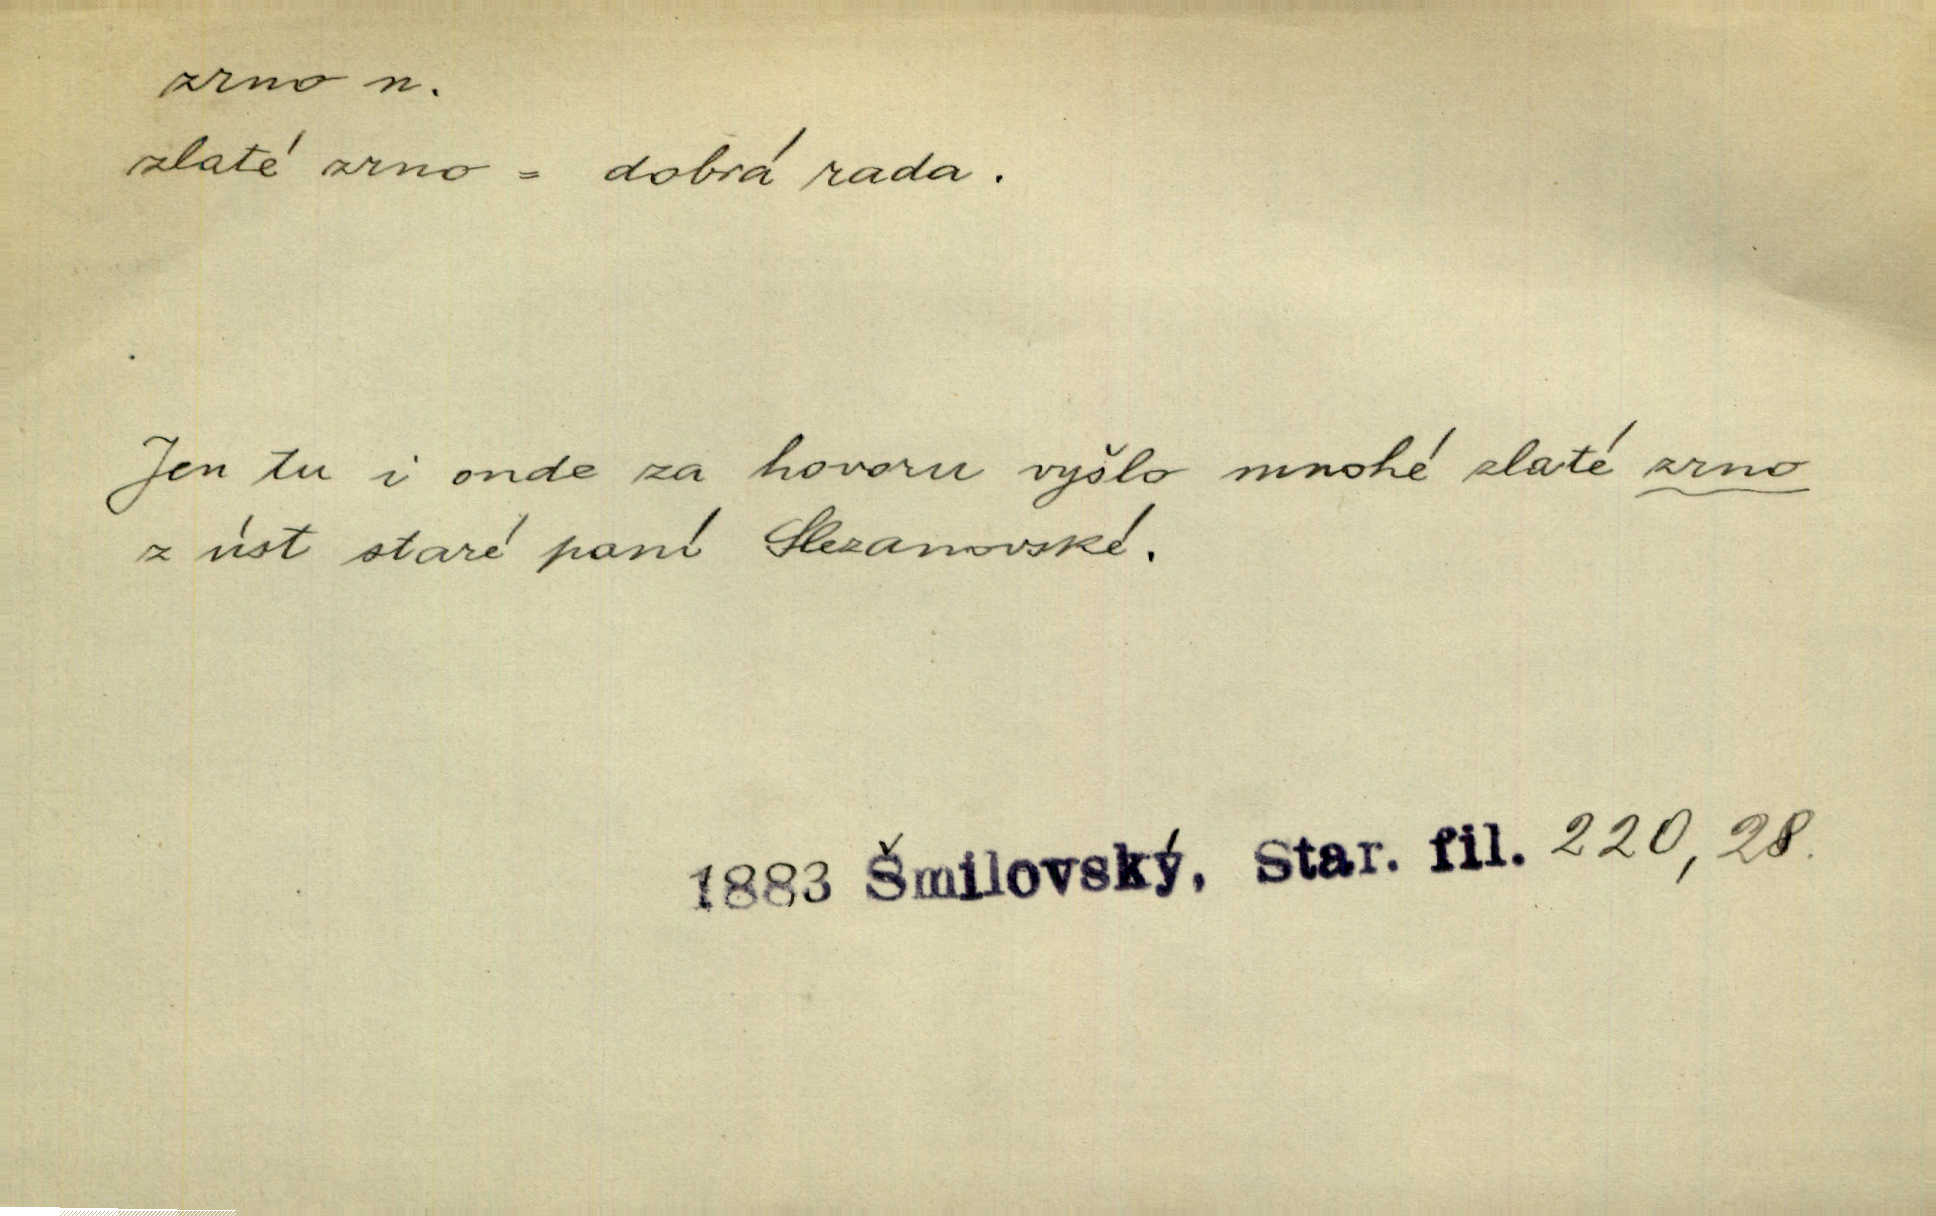 zrno n.
zlaté zrno = dobrá rada.
Jen tu i onde za hovoru vyšlo mnohé zlaté zrno
z úst staré paní Slezanovské.
1883 Šmilovský, Star. fil. 220, 28.